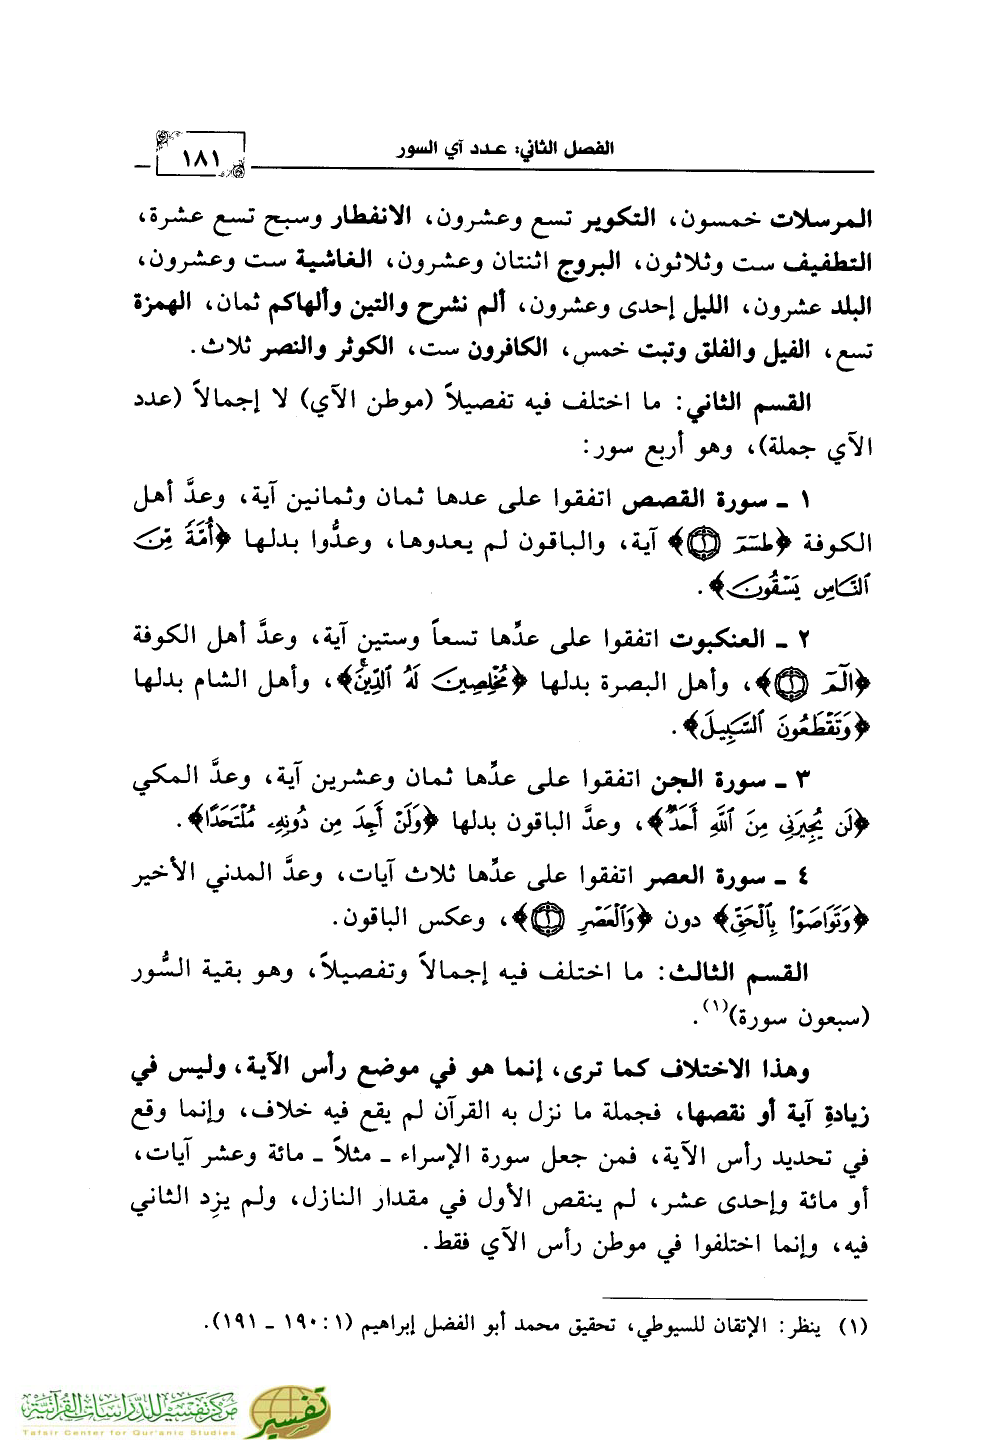 الفصل الثاني: عدد آي السور
١٨١
المرسلات خمسون، التكوير تسع وعشرون، الانفطار وسبح تسع عشرة،
التطفيف ست وثلاثون، البروج اثنتان وعشرون، الغاشية ست وعشرون،
البلد عشرون، الليل إحدى وعشرون، ألم نشرح والتين وألهاكم ثمان، الهمزة
تسع، الفيل والفلق وتبت خمس، الكافرون ست، الكوثر والنصر ثلاث.
القسم الثاني: ما اختلف فيه تفصيلاً (موطن الآي) لا إجمالاً (عدد
الآي جملة)، وهو أربع سور:
١ ـ سورة القصص اتفقوا على عدها ثمان وثمانين آية، وعدَّ أهل
الكوفة ﴿طسٓمٓ ۝١﴾ آية، والباقون لم يعدوها، وعدُّوا بدلها ﴿أُمَّةً مِّنَ
ٱلنَّاسِ يَسْقُونَ﴾.
٢ ـ العنكبوت اتفقوا على عدِّها تسعاً وستين آية، وعدَّ أهل الكوفة
﴿الٓمٓ ۝١﴾، وأهل البصرة بدلها ﴿مُخْلِصِينَ لَهُ ٱلدِّينَۚ﴾، وأهل الشام بدلها
﴿وَتَقْطَعُونَ ٱلسَّبِيلَ﴾.
٣ ـ سورة الجن اتفقوا على عدِّها ثمان وعشرين آية، وعدَّ المكي
﴿لَن يُجِيرَنِي مِنَ ٱللَّهِ أَحَدٌ﴾، وعدَّ الباقون بدلها ﴿وَلَنْ أَجِدَ مِن دُونِهِۦ مُلْتَحَدًا﴾.
٤ ـ سورة العصر اتفقوا على عدِّها ثلاث آيات، وعدَّ المدني الأخير
﴿وَتَوَاصَوْا۟ بِٱلْحَقِّ﴾ دون ﴿وَٱلْعَصْرِ ۝١﴾، وعكس الباقون.
القسم الثالث: ما اختلف فيه إجمالاً وتفصيلاً، وهو بقية السُّور
(سبعون سورة)(١).
وهذا الاختلاف كما ترى، إنما هو في موضع رأس الآية، وليس في
زيادةِ آية أو نقصها، فجملة ما نزل به القرآن لم يقع فيه خلاف، وإنما وقع
في تحديد رأس الآية، فمن جعل سورة الإسراء ـ مثلاً ـ مائة وعشر آيات،
أو مائة وإحدى عشر، لم ينقص الأول في مقدار النازل، ولم يزِد الثاني
فيه، وإنما اختلفوا في موطن رأس الآي فقط.
(١) ينظر: الإتقان للسيوطي، تحقيق محمد أبو الفضل إبراهيم (١: ١٩٠ ـ ١٩١).
مركز تفسير للدراسات القرآنية
Tafsir Center for Qur'anic Studies
تفسير